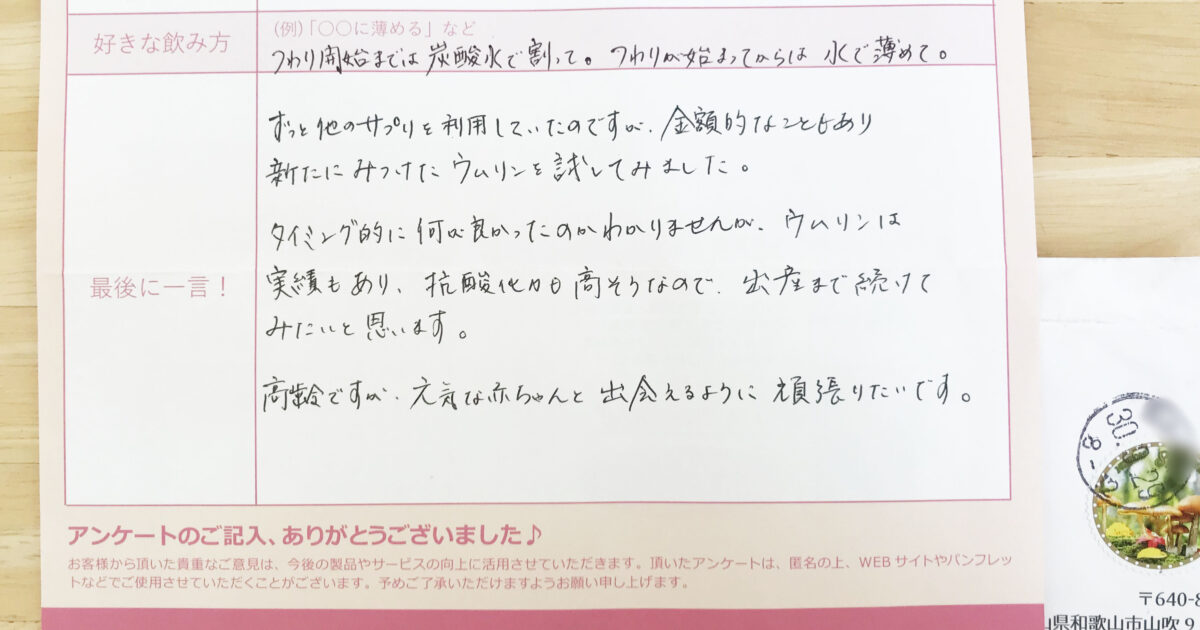 好きな飲み方
(例)「〇〇に薄める」など
つわり開始までは炭酸水で割って。つわりが始まってからは 水で薄めて。
最後に一言！
ずっと他のサプリを利用していたのですが、金額的なこともあり
新たにみつけたウムリンを試してみました。
タイミング的に何が良かったのかわかりませんが、ウムリンは
実績もあり、抗酸化力も高そうなので、出産まで続けて
みたいと思います。
高齢ですが、元気な赤ちゃんと出会えるように頑張りたいです。
アンケートのご記入、ありがとうございました♪
お客様から頂いた貴重なご意見は、今後の製品やサービスの向上に活用させていただきます。頂いたアンケートは、匿名の上、WEBサイトやパンフレッ
トなどでご使用させていただくことがございます。予めご了承いただけますようお願い申し上げます。
30.
〒640-8
県和歌山市山吹9